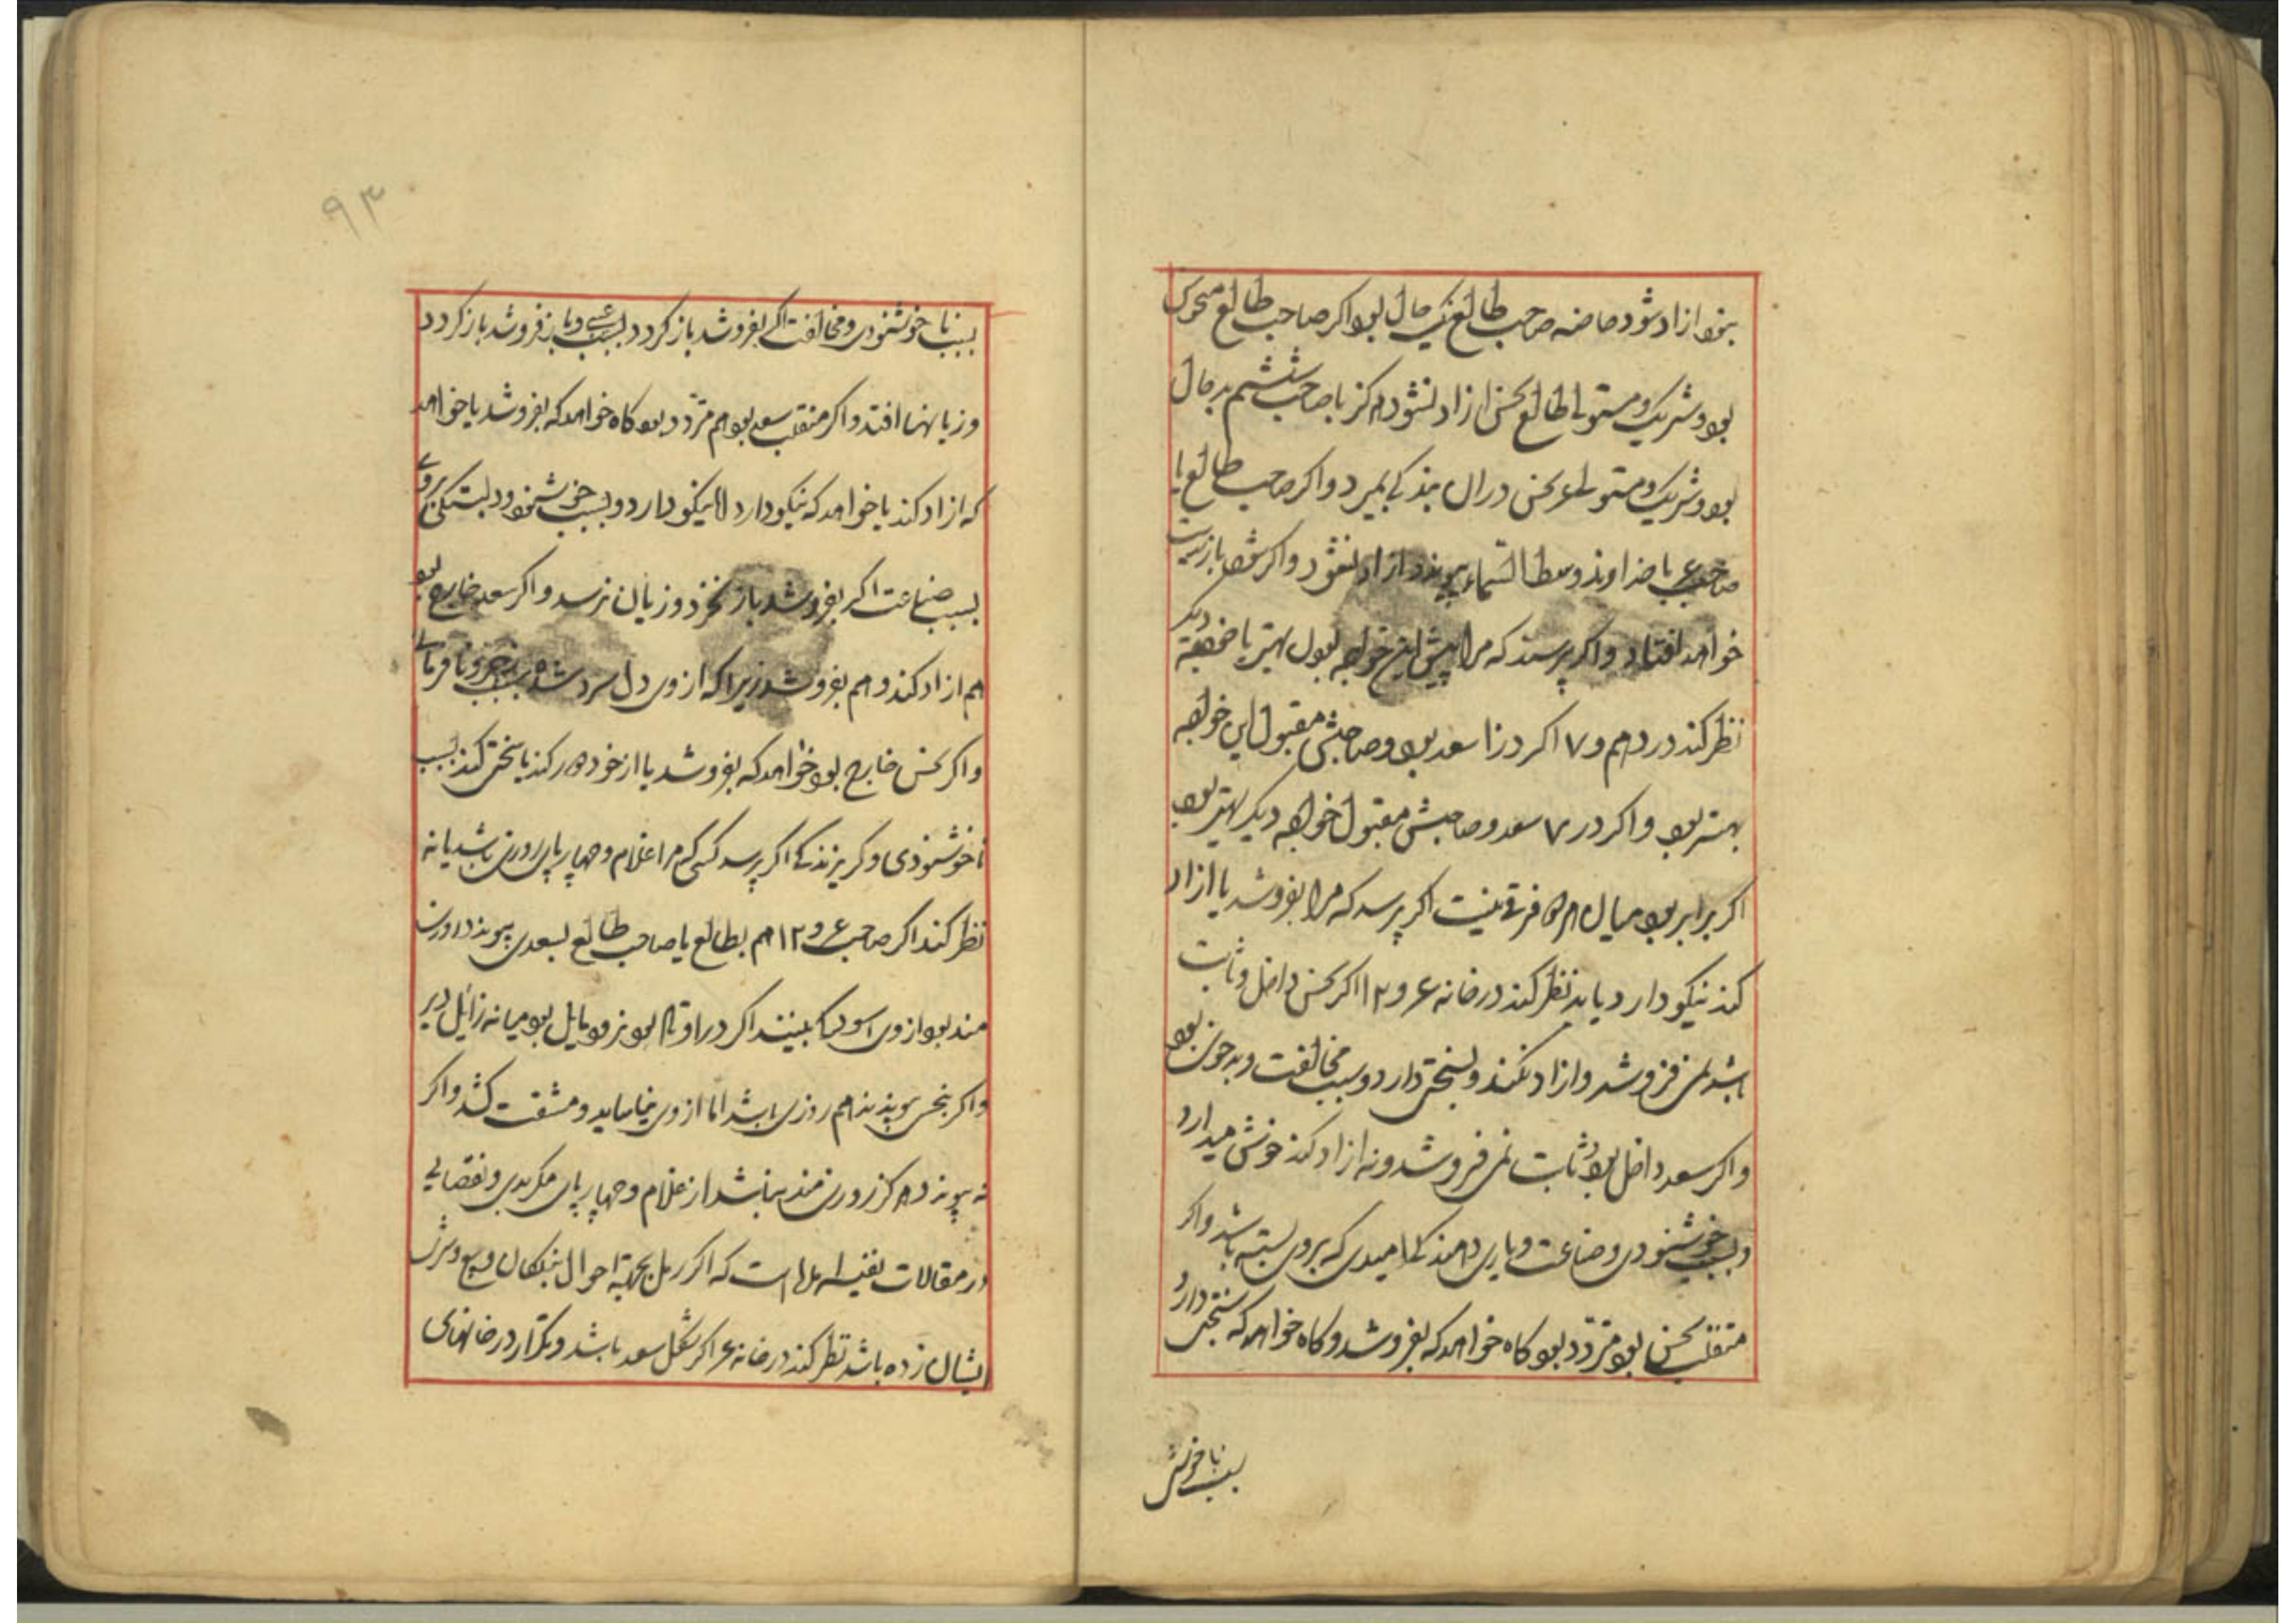 بخود ازاد شود خاصه صاحب طالع نیک حال بود اکر صاحب طالع منحوس
بود و شریک و مستولی طالع نحس ازاد نشود هرکز با صاحب ششم بدحال
بود و شریک و مستولی ۶ نحس دران بندکی بمیرد و اکر صاحب طالع با
صاحب ۶ با خداوند وسط السماء پیوندد ازاد نشود و اکر شود باز بدست
خواهد افتاد و اکر پرسند که مرا پیش این خواجه بودن بهتر یا خواجه دیکر
نظر کند در دهم و ۷ اکر در ۱۰ سعد بود و صاحبش مقبول این خواجه
بهتر بود و اکر در ۷ سعد و صاحبش مقبول خواجه دیکر بهتر بود
اکر برابر بود میان هر دو فرقی نیست اکر پرسد که مرا بفروشد یا ازاد
کند نیکو دارد باید نظر کند در خانه ۶ و ۱۲ اکر نحس داخل و ثابت
باشد نمی فروشد و ازاد نکند و بسختی دارد و بسبب مخالفت و بدخوئی بود
و اکر سعد داخل بود و ثابت نمی فروشد و نه ازاد کند خوش میدارد
و بسبب خوشنودی و صناعت و یاری دهندکی امیدی که بروی بسته باشد و اکر
منقلب نحس بود متردد بود کاه خواهد که بفروشد و کاه خواهد که بسختی دارد
بسبب ناخوش
۹۳
بسبب ناخوشنودی و مخالفت اکر بفروشد باز کردد بسبب عیبی و باز فروشد باز کردد
و زیانها افتد و اکر منقلب سعد بود هم متردد بود کاه خواهد که بفروشد یا خواهد
که ازاد کند یا خواهد که نیکو دارد الا نیکو دارد و بسبب خوشنودی و بستکی بروی
بسبب صناعت اکر بفروشد باز نخرد و زیان نرسد و اکر سعد خارج بود
هم ازاد کند و هم بفروشد زیرا که از وی دل سرد شده بسبب عجز و نافرمانی
و اکر نحس خارج بود خواهد که بفروشد یا از خود دور کند یا سختی کند بسبب
ناخوشنودی و کریزندکی اکر پرسد کسی که مرا غلام و چهارپای روزی باشد یا نه
نظر کند اکر صاحب ۶ و ۱۲ هم بطالع یا صاحب طالع بسعدی پیوندد روزی
مند بود از وی اسودکی بیند اکر در اوتاد بود زود مایل بود میانه زایل دیر
و اکر بنحس پیوندد هم روزی باشد اما از وی نیاساید و مشقت کشد و اکر
نه پیوندد هرکز روزی مند نباشد از غلام و چهارپای مکر بدی و نقصانی
در مقالات نفیسه است که اکر رمل بجهة احوال بندکان و بیع و شری
ایشان زده باشد نظر کند در خانه ۶ اکر شکل سعد باشد و تکرار در خانهای